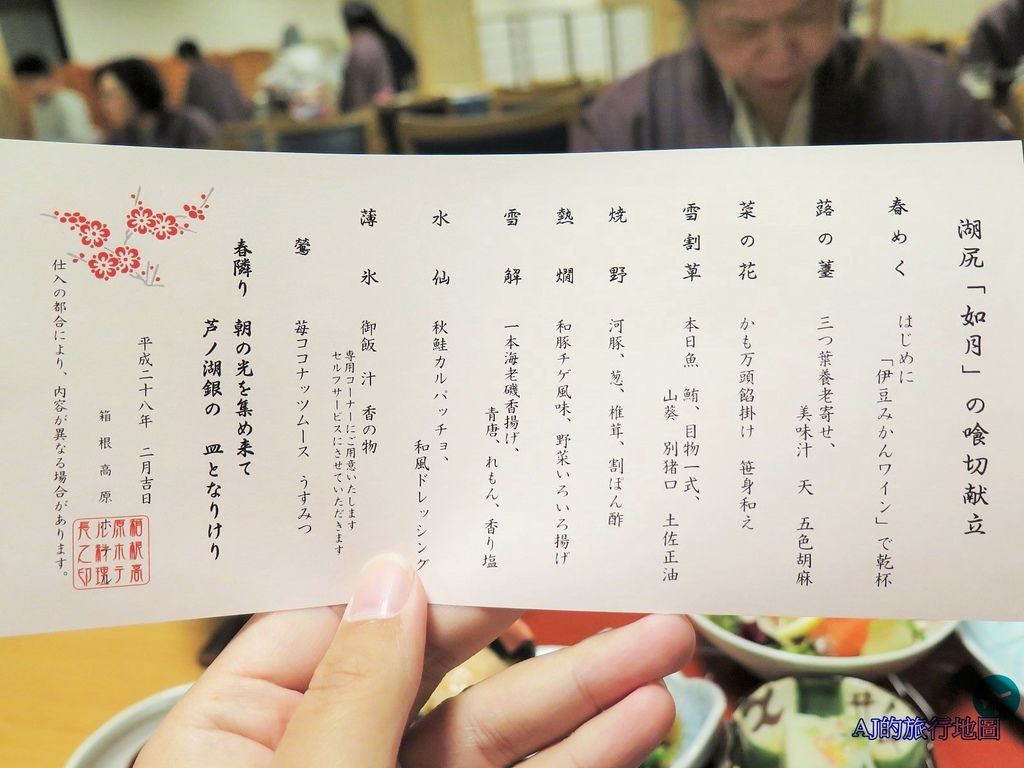 湖尻「如月」の喰切献立
春めく　はじめに
「伊豆みかんワイン」で乾杯
蕗の薹　三つ葉養老寄せ、
美味汁　天　五色胡麻
菜の花　かも万頭餡掛け　笹身和え
雪割草　本日魚　鮪、目物一式、
山葵　別猪口　土佐正油
焼野　河豚、葱、椎茸、割ぽん酢
熱燗　和豚チゲ風味、野菜いろいろ揚げ
雪解　一本海老磯香揚げ、
青唐、れもん、香り塩
水仙　秋鮭カルパッチョ、
和風ドレッシング
薄氷　御飯　汁　香の物
専用コーナーにご用意いたします
セルフサービスにさせていただきます
鶯　苺ココナッツムース　うすみつ
春隣り　朝の光を集め来て
芦ノ湖銀の　皿となりけり
平成二十八年　二月吉日
箱根高原ホテル
箱根高
原ホテ
ル料理
長之印
仕入の都合により、内容が異なる場合があります。
AJ的旅行地圖